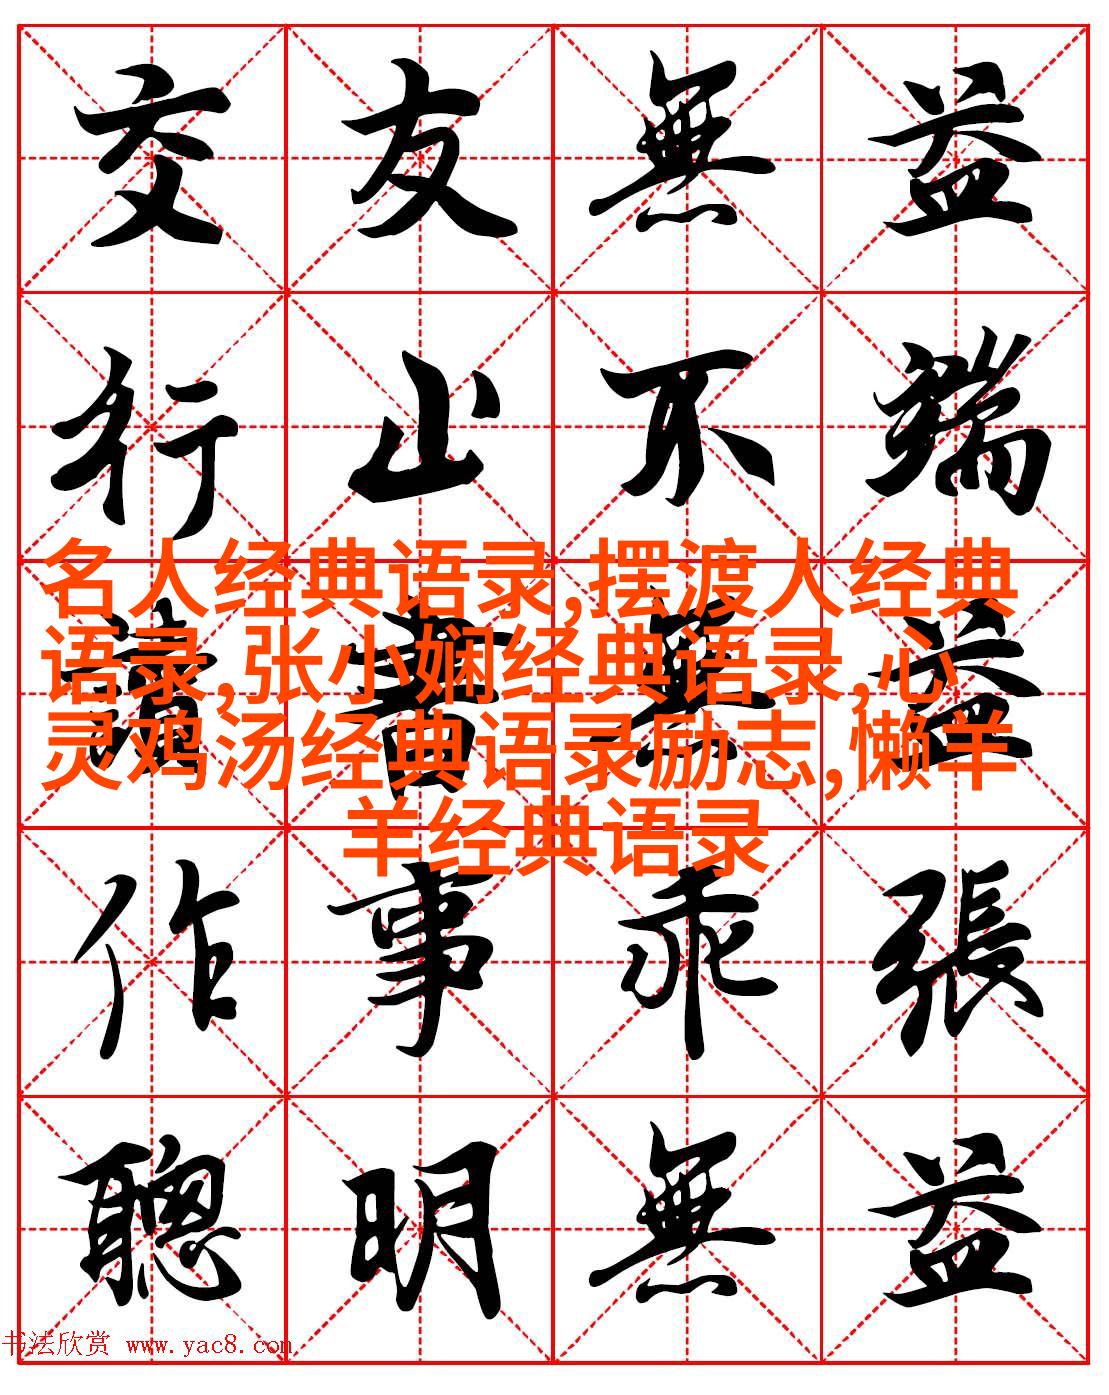 交友無益
行止不端
名人经典语录,摆渡人经典
语录,张小娴经典语录,心
灵鸡汤经典语录励志,懒羊
羊经典语录
讀書無益
作事乖張
聰明無益
书法欣赏 www.yac8.com